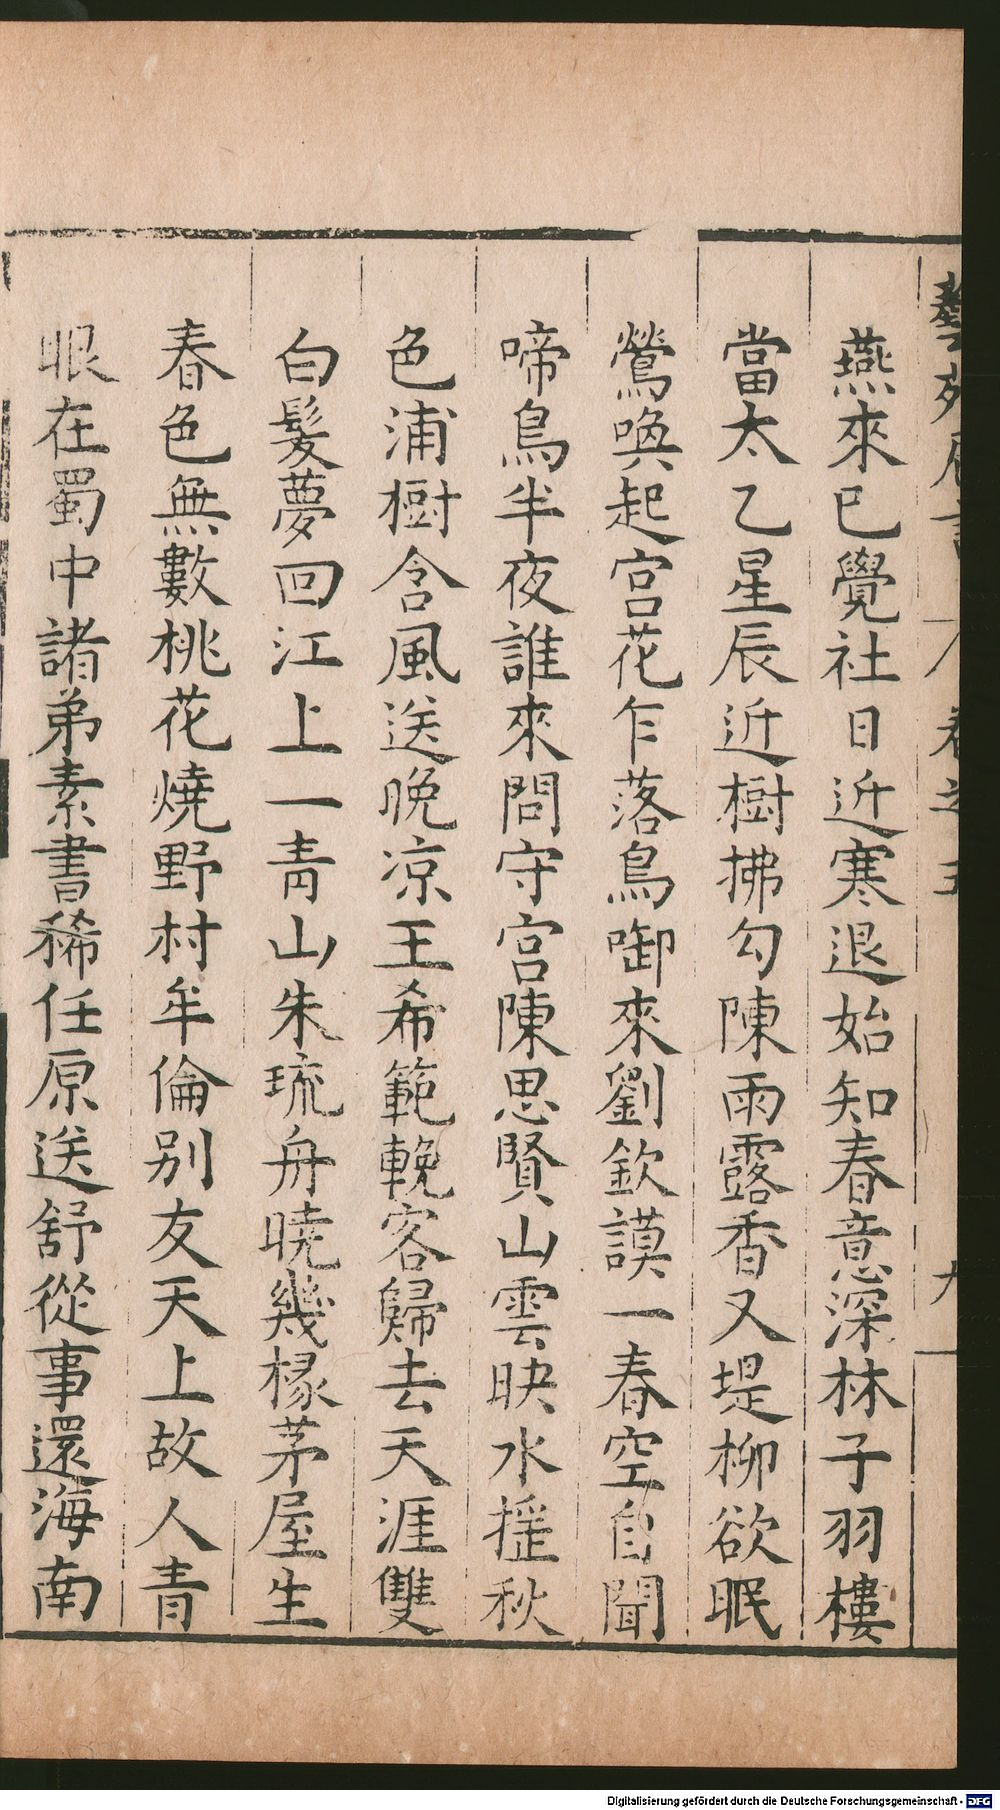 藝苑卮言 卷之五 九
燕來已覺社日近寒退始知春意深林子羽樓
當太乙星辰近樹拂勾陳雨露香又堤柳欲眠
鶯喚起宮花乍落鳥啣來劉欽謨一春空自聞
啼鳥半夜誰來問守宮陳思賢山雲映水搖秋
色浦樹含風送晚凉王希範輓客歸去天涯雙
白髮夢回江上一青山朱琉舟曉幾椽茅屋生
春色無數桃花燒野村牟倫别友天上故人青
眼在蜀中諸弟素書稀任原送舒從事還海南
Digitalisierung gefördert durch die Deutsche Forschungsgemeinschaft - DFG